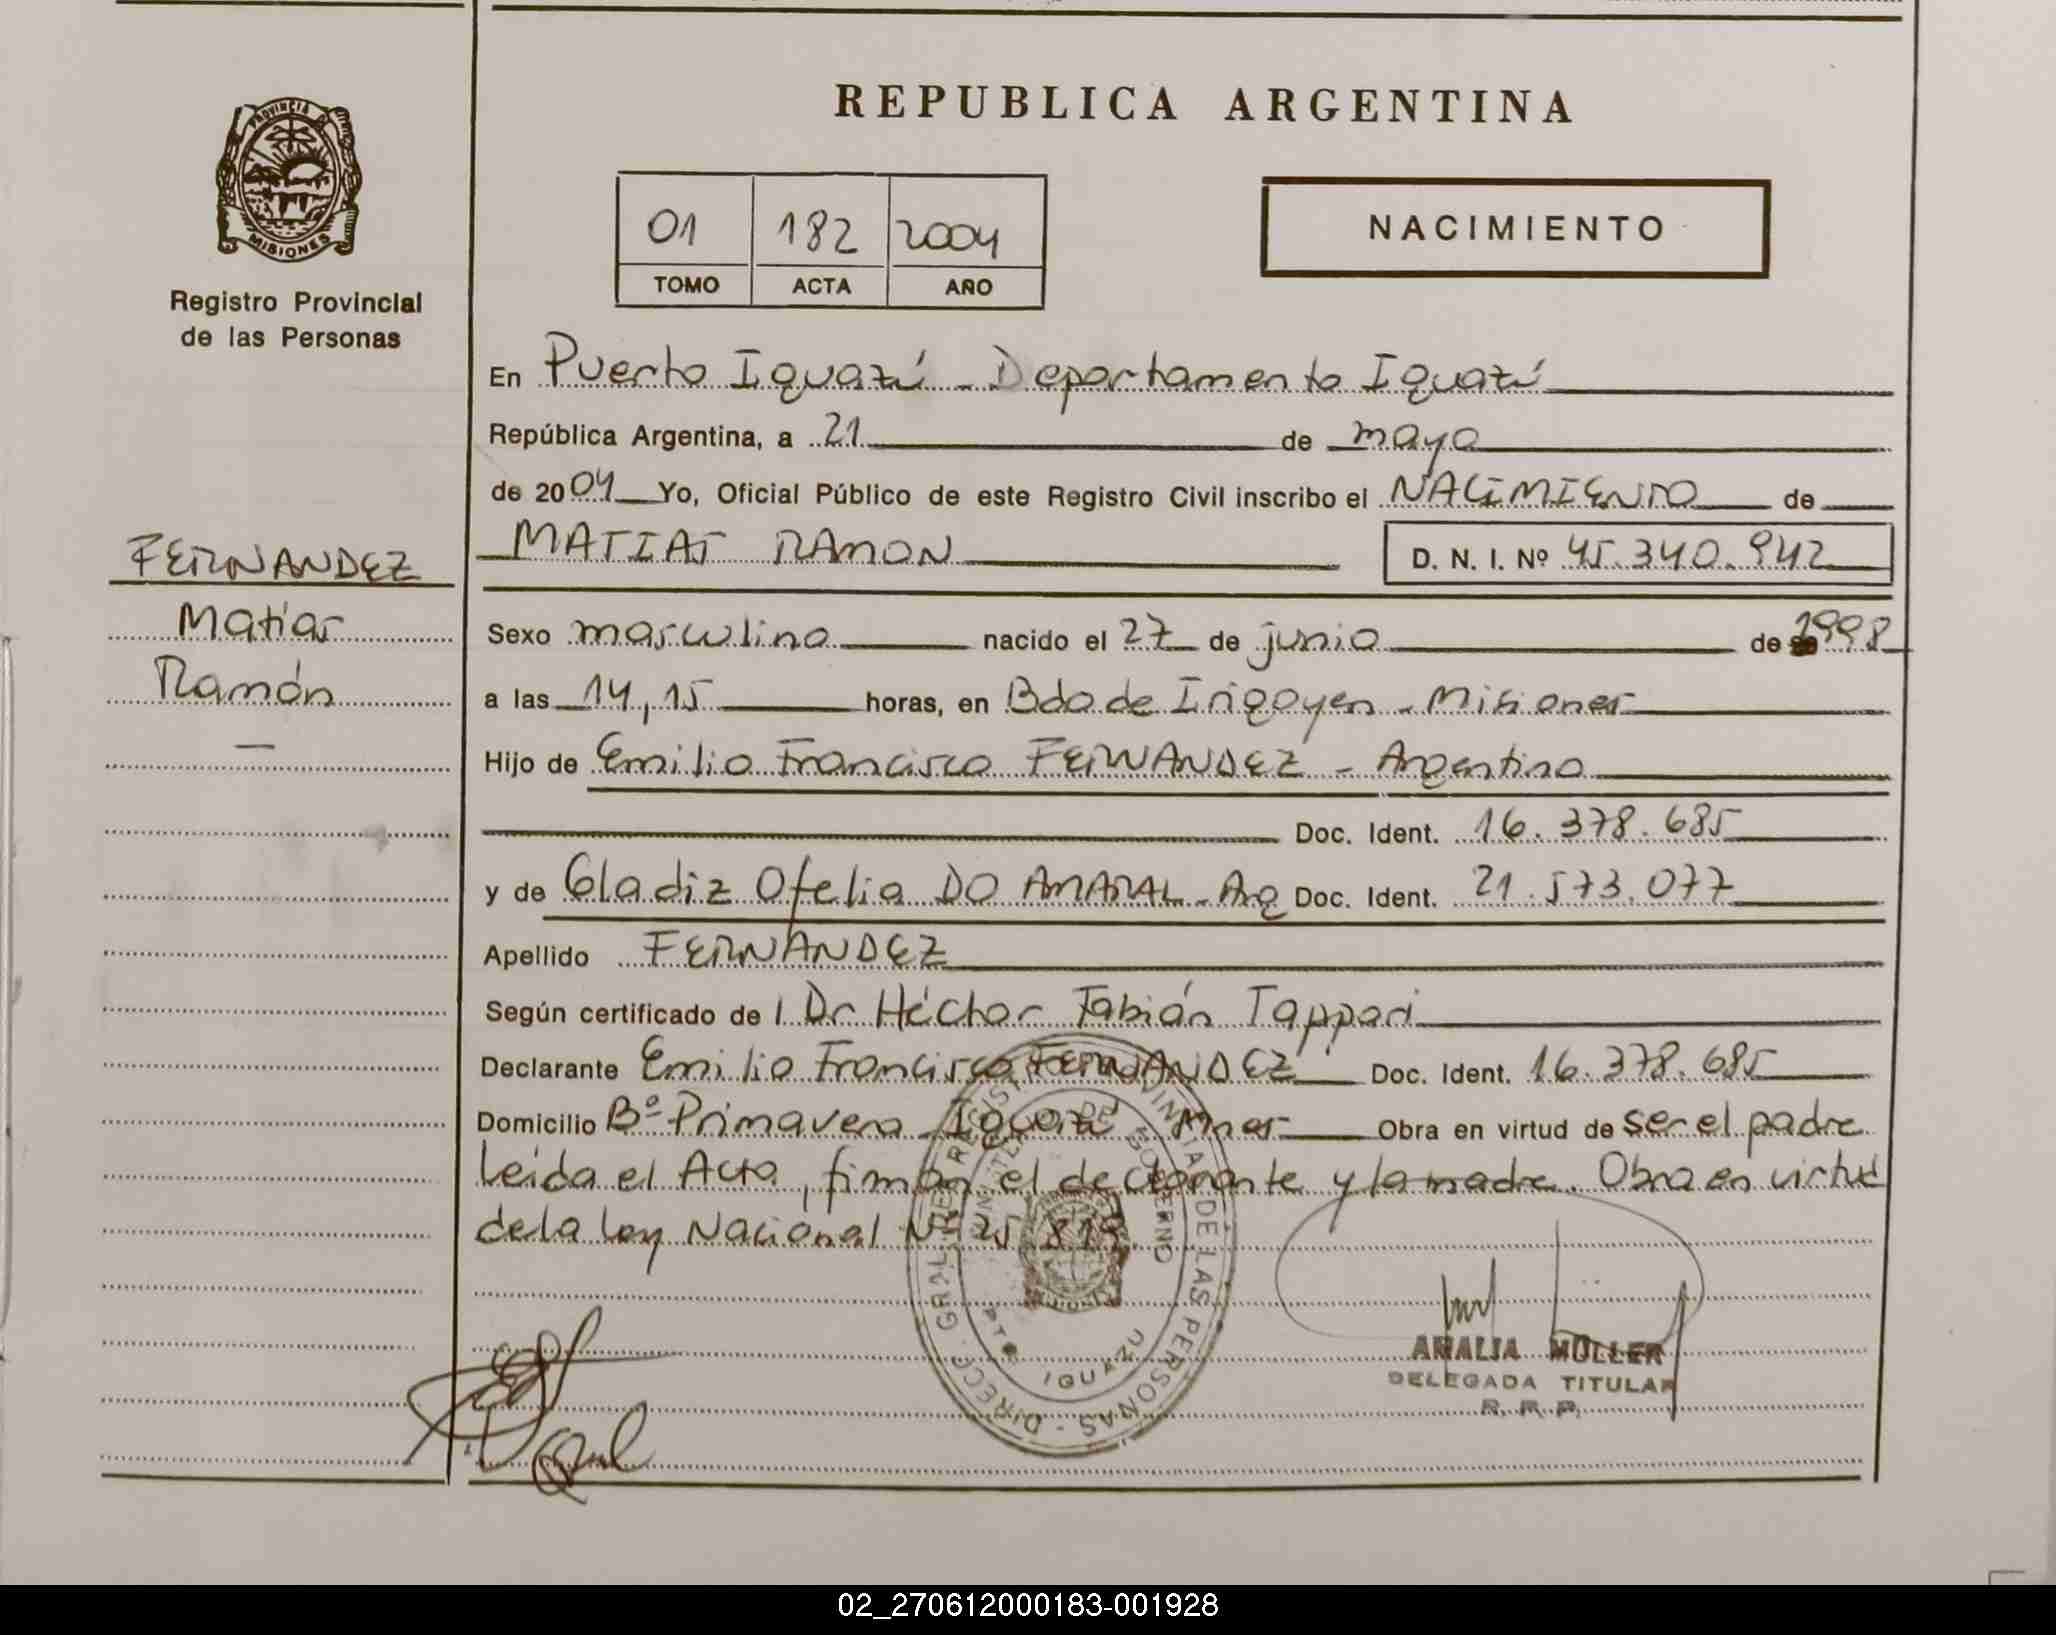 REPUBLICA ARGENTINA
PROVINCIA DE
MISIONES
Registro Provincial
de las Personas
01 182 2004
TOMO ACTA AÑO
NACIMIENTO
En Puerto Iguazú - Departamento Iguazú
República Argentina, a 21 de mayo
de 2004 Yo, Oficial Público de este Registro Civil inscribo el NACIMIENTO de
MATIAS RAMON D. N. I. Nº 45.340.942
FERNANDEZ
Matías
Ramón
Sexo masculino nacido el 27 de junio de 1998
a las 14,15 horas, en Bdo de Irigoyen - Misiones
Hijo de Emilio Francisco FERNANDEZ - Argentino
Doc. Ident. 16.378.685
y de Gladiz Ofelia DO AMARAL - Arg Doc. Ident. 21.573.077
Apellido FERNANDEZ
Según certificado de l Dr Héctor Fabián Tappari
Declarante Emilio Francisco FERNANDEZ Doc. Ident. 16.378.685
Domicilio Bº Primavera - Iguazú Mnes Obra en virtud de ser el padre
Leída el Acta, firman el declarante y la madre. Obra en virtud
de la Ley Nacional Nº 25.819
DIRECC. GRAL. DE REGISTRO PROVINCIAL DE LAS PERSONAS
MINISTERIO DE GOBIERNO
PTO. IGUAZU
MISIONES
ANALIA MULLER
DELEGADA TITULAR
R. R. P.
02_270612000183-001928